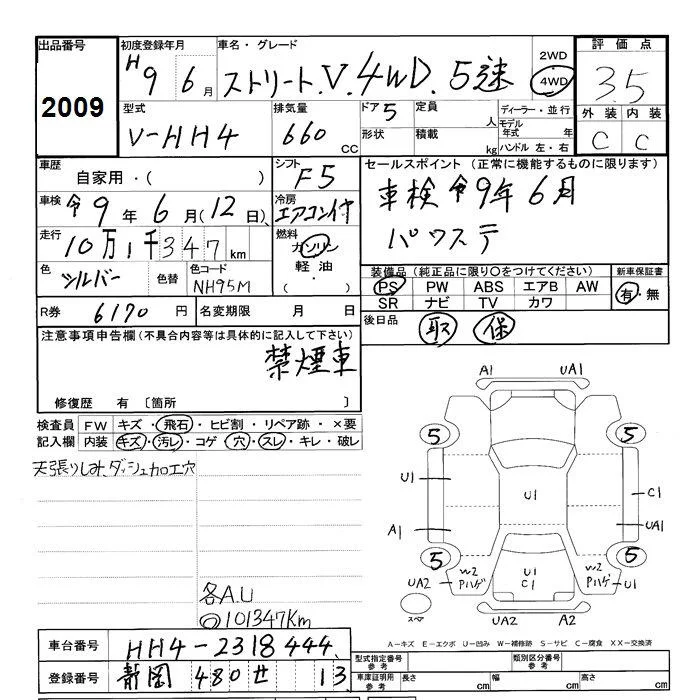 出品番号
2009
初度登録年月
H9 6月
車名・グレード
ストリート.V.4WD.5速
2WD
4WD
評価点
3.5
外装 内装
C C
型式
V-HH4
排気量
660 CC
ドア 5
形状
定員 人
積載 kg
ディーラー・並行
モデル年式 年
ハンドル 左・右
車歴
自家用・( )
シフト
F5
セールスポイント (正常に機能するものに限ります)
車検令9年6月
パワステ
車検
令9年6月(12日)
冷房
エアコン付
走行
10万1千347km
燃料
ガソリン
軽油
・( )
色
シルバー
色替
色コード
NH95M
装備品 (純正品に限り〇をつけてください)
新車保証書
PS PW ABS エアB AW
有・無
SR ナビ TV カワ
R券 6170円
名変期限 月 日
後日品
取 保
注意事項申告欄(不具合内容等は具体的に記入して下さい)
禁煙車
修復歴 有 〔箇所 〕
検査員記入欄
FW キズ・飛石・ヒビ割・リペア跡・×要
内装 キズ・汚レ・コゲ・穴・スレ・キレ・破レ
天張りしみ、ダッシュカロエ穴
各A.U
101347Km
A1 UA1
5 5
U1 U1 C1
A1 UA1
5 5
W2 Pハゲ U1 C1 W2 Pハゲ U1
UA2
スペア
UA2 A2
A-キズ E-エクボ U-凹み W-補修跡 S-サビ C-腐食 XX-交換済
車台番号
HH4-2318444
登録番号
静岡 480 せ 13
型式指定番号 参考
類別区分番号 参考
車庫証明用 参考
長さ cm
幅 cm
高さ cm